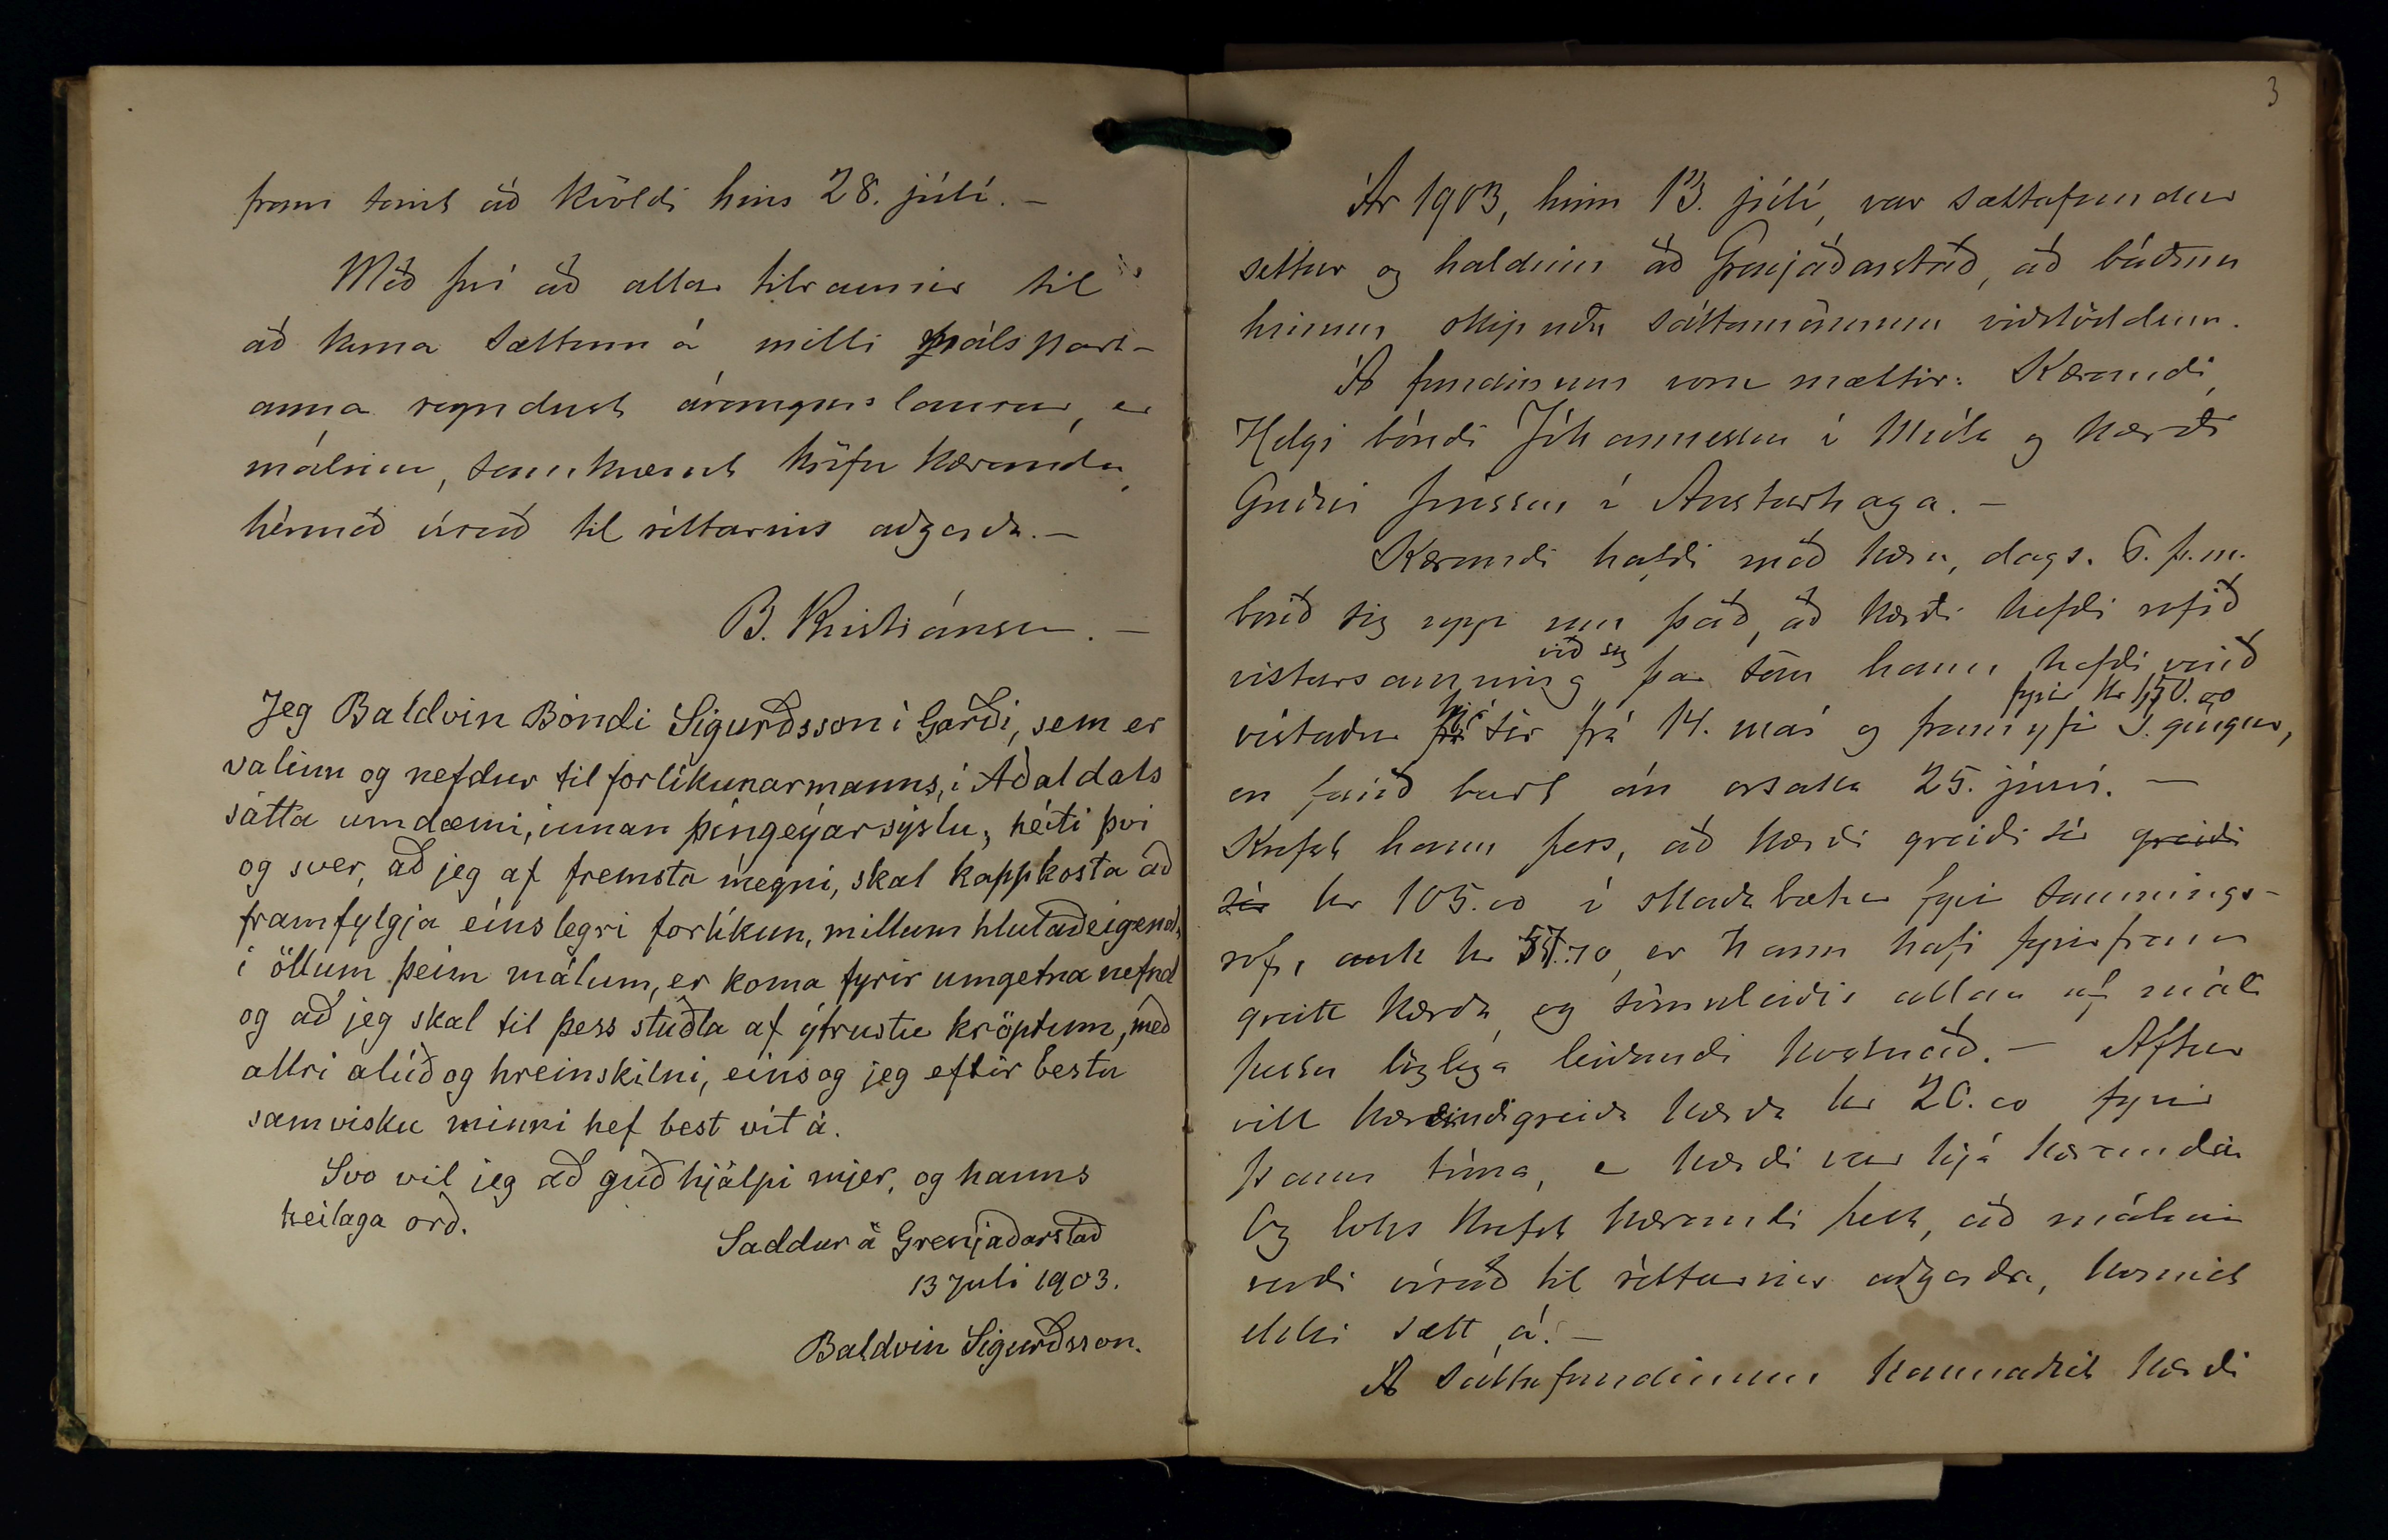 fram tomt að kvöldi hins 28. júlí. –
Með því að allar tilraunir til
að koma sættum á milli málspart-
anna reyndust árangurslausar, er
málinu, samkvæmt kröfu kæranda,
hérmeð vísað til réttarins aðgerða. –
B. Kristjánsson. –
Jeg Baldvin Bóndi Sigurðsson í Garði, sem er
valinn og nefdur til forlíkunarmanns, í Aðaldals
sátta umdæmi, innan þingeýarsýslu, héiti því
og sver, að jeg af fremsta megni, skal kappkosta að
framfylgja einslegri forlíkun, millum hlutaðeigend,
í öllum þeim málum, er koma fyrir umgetna nefnd
og að jeg skal til þess stuðla af ýtrustu kröptum, með
allri alúð og hreinskilni, eins og jeg eftir bestu
samvisku minni hef best vit á.
Svo vil jeg að guð hjálpi mjer, og hanns
heilaga orð.
Saddur á Grenjaðarstað
13 Juli 1903.
Baldvin Sigurðsson.
3
Ár 1903, hinn 13. júlí, var sáttafundur
settur og haldinn að Grenjaðarstað, að báðum
hinum skipuðu sáttamönnum viðstöddum.
Á fundinum voru mættir: Kærandi,
Helgi bóndi Jóhannesson í Múla og kærði
Guðni Jónsson í Austurhaga. –
Kærandi hafði með kæru, dags. 6. þ.m.
borið sig upp um það, að kærði hefði rofið
við sig
vistarsamning þar sem hann hefði verið
hjá fyrir kr 150.00
vistaður frá sér frá 14. maí og fram yfir 3. göngur,
en farið burt án orsaka 25. júní. –
Krefst hann þess, að kærði greiði sér greiði
sér kr 105.00 í skaðabætur fyrir samnings-
rof, auk kr 57.70, er hann hafi fyrirfram
greitt kærða, og sömuleiðis allan af máli
þessu löglega leiðandi kostnað. – Aftur
vill kærandi greiða kærða kr 20.00 fyrir
þann tíma, er kærði var hjá kæranda.
Og loks krefst kærandi þess, að málinu
verði vísað til réttarins aðgerða, komist
ekki sætt á. –
Á sáttafundinum kannaðist kærði